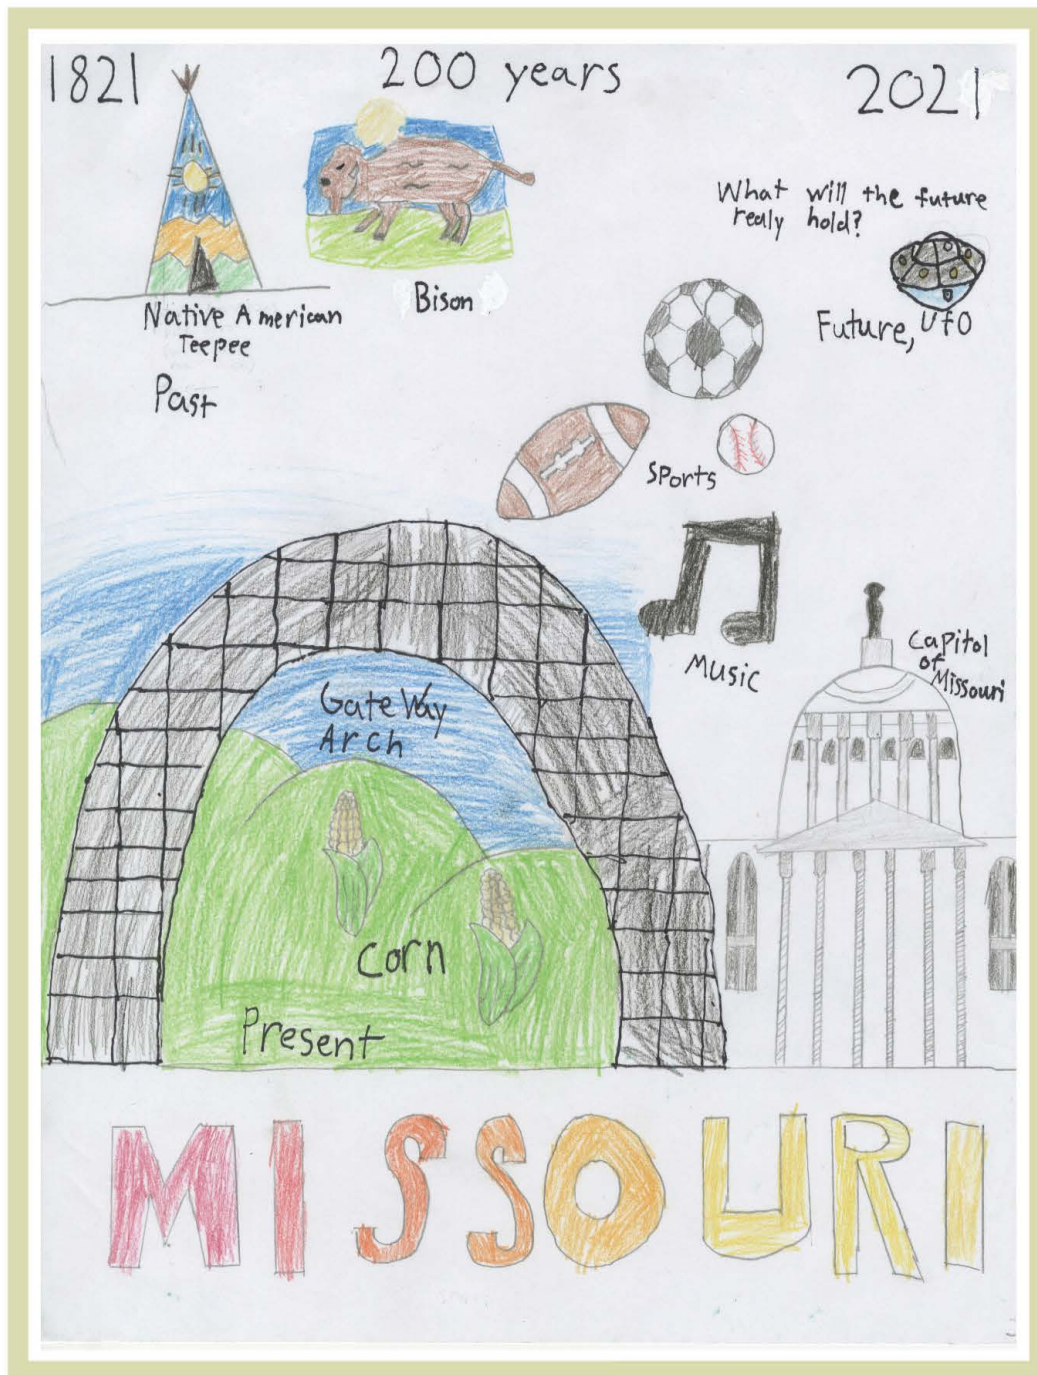 1821
200 years
2021
What will the future
realy hold?
Future, UfO
Native American
Teepee
Bison
Past
Sports
Music
Capitol
of
Missouri
GateWay
Arch
Corn
Present
MISSOURI